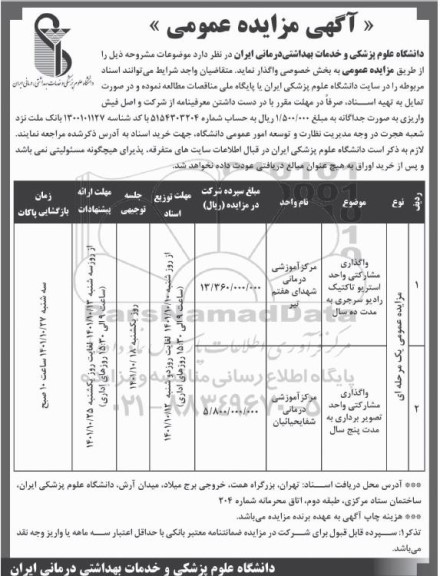 « آگهی مزایده عمومی »
دانشگاه علوم پزشکی و خدمات بهداشتی‌درمانی ایران در نظر دارد موضوعات مشروحه ذیل را
از طریق مزایده عمومی به بخش خصوصی واگذار نماید. متقاضیان واجد شرایط می‌توانند اسناد
مربوطه را در سایت دانشگاه علوم پزشکی ایران یا پایگاه ملی مناقصات مطالعه نموده و در صورت
تمایل به تهیه اسناد، صرفاً در مهلت مقرر با در دست داشتن معرفینامه از شرکت و اصل فیش
واریزی به صورت جداگانه به مبلغ ۱/۵۰۰/۰۰۰ ریال به حساب شماره ۵۱۵۴۳۰۳۲۰۴ با کد شناسه ۱۳۰۰۱۰۱۱۲۷ بانک ملت نزد
شعبه هجرت در وجه مدیریت نظارت و توسعه امور عمومی دانشگاه، جهت خرید اسناد به آدرس ذکرشده مراجعه نمایند.
لازم به ذکر است دانشگاه علوم پزشکی ایران در قبال اطلاعات سایت های متفرقه، پذیرای هیچگونه مسئولیتی نمی باشد
و پس از خرید اوراق به هیچ عنوان مبالغ دریافتی عودت داده نخواهد شد.
ردیف
نوع
موضوع
نام واحد
مبلغ سپرده شرکت در مزایده (ریال)
مهلت توزیع اسناد
جلسه توجیهی
مهلت ارائه پیشنهادات
زمان بازگشایی پاکات
۱
مزایده عمومی یک مرحله ای
واگذاری مشارکتی واحد استریو تاکتیک رادیو سرجری به مدت ده سال
مرکز آموزشی درمانی شهدای هفتم تیر
۱۳/۳۶۰/۰۰۰/۰۰۰
از روز شنبه ۱۴۰۱/۱۰/۱۰ لغایت روز دوشنبه ۱۴۰۱/۱۰/۱۲ (ساعت ۹ الی ۱۵:۳۰ روزهای اداری)
روز یکشنبه ۱۴۰۱/۱۰/۱۸
از روز سه شنبه ۱۴۰۱/۱۰/۱۳ لغایت روز یکشنبه ۱۴۰۱/۱۰/۲۵ (ساعت ۹ الی ۱۵:۳۰ روزهای اداری)
سه شنبه ۱۴۰۱/۱۰/۲۷ ساعت ۱۰ صبح
۲
واگذاری مشارکتی واحد تصویر برداری به مدت پنج سال
مرکز آموزشی درمانی شفایحیائیان
۵/۸۰۰/۰۰۰/۰۰۰
ParsNamadData
پایگاه اطلاع رسانی مناقصه و مزایده
۰۲۱-۸۸۳۴۹۶۷۰-۵
*** آدرس محل دریافت اسناد: تهران، بزرگراه همت، خروجی برج میلاد، میدان آرش، دانشگاه علوم پزشکی ایران،
ساختمان ستاد مرکزی، طبقه دوم، اتاق محرمانه شماره ۲۰۴
*** هزینه چاپ آگهی به عهده برنده مزایده می‌باشد.
تذکر۱: سپرده قابل قبول برای شرکت در مزایده ضمانتنامه معتبر بانکی با حداقل اعتبار سه ماهه یا واریز وجه نقد
می‌باشد.
دانشگاه علوم پزشکی و خدمات بهداشتی درمانی ایران